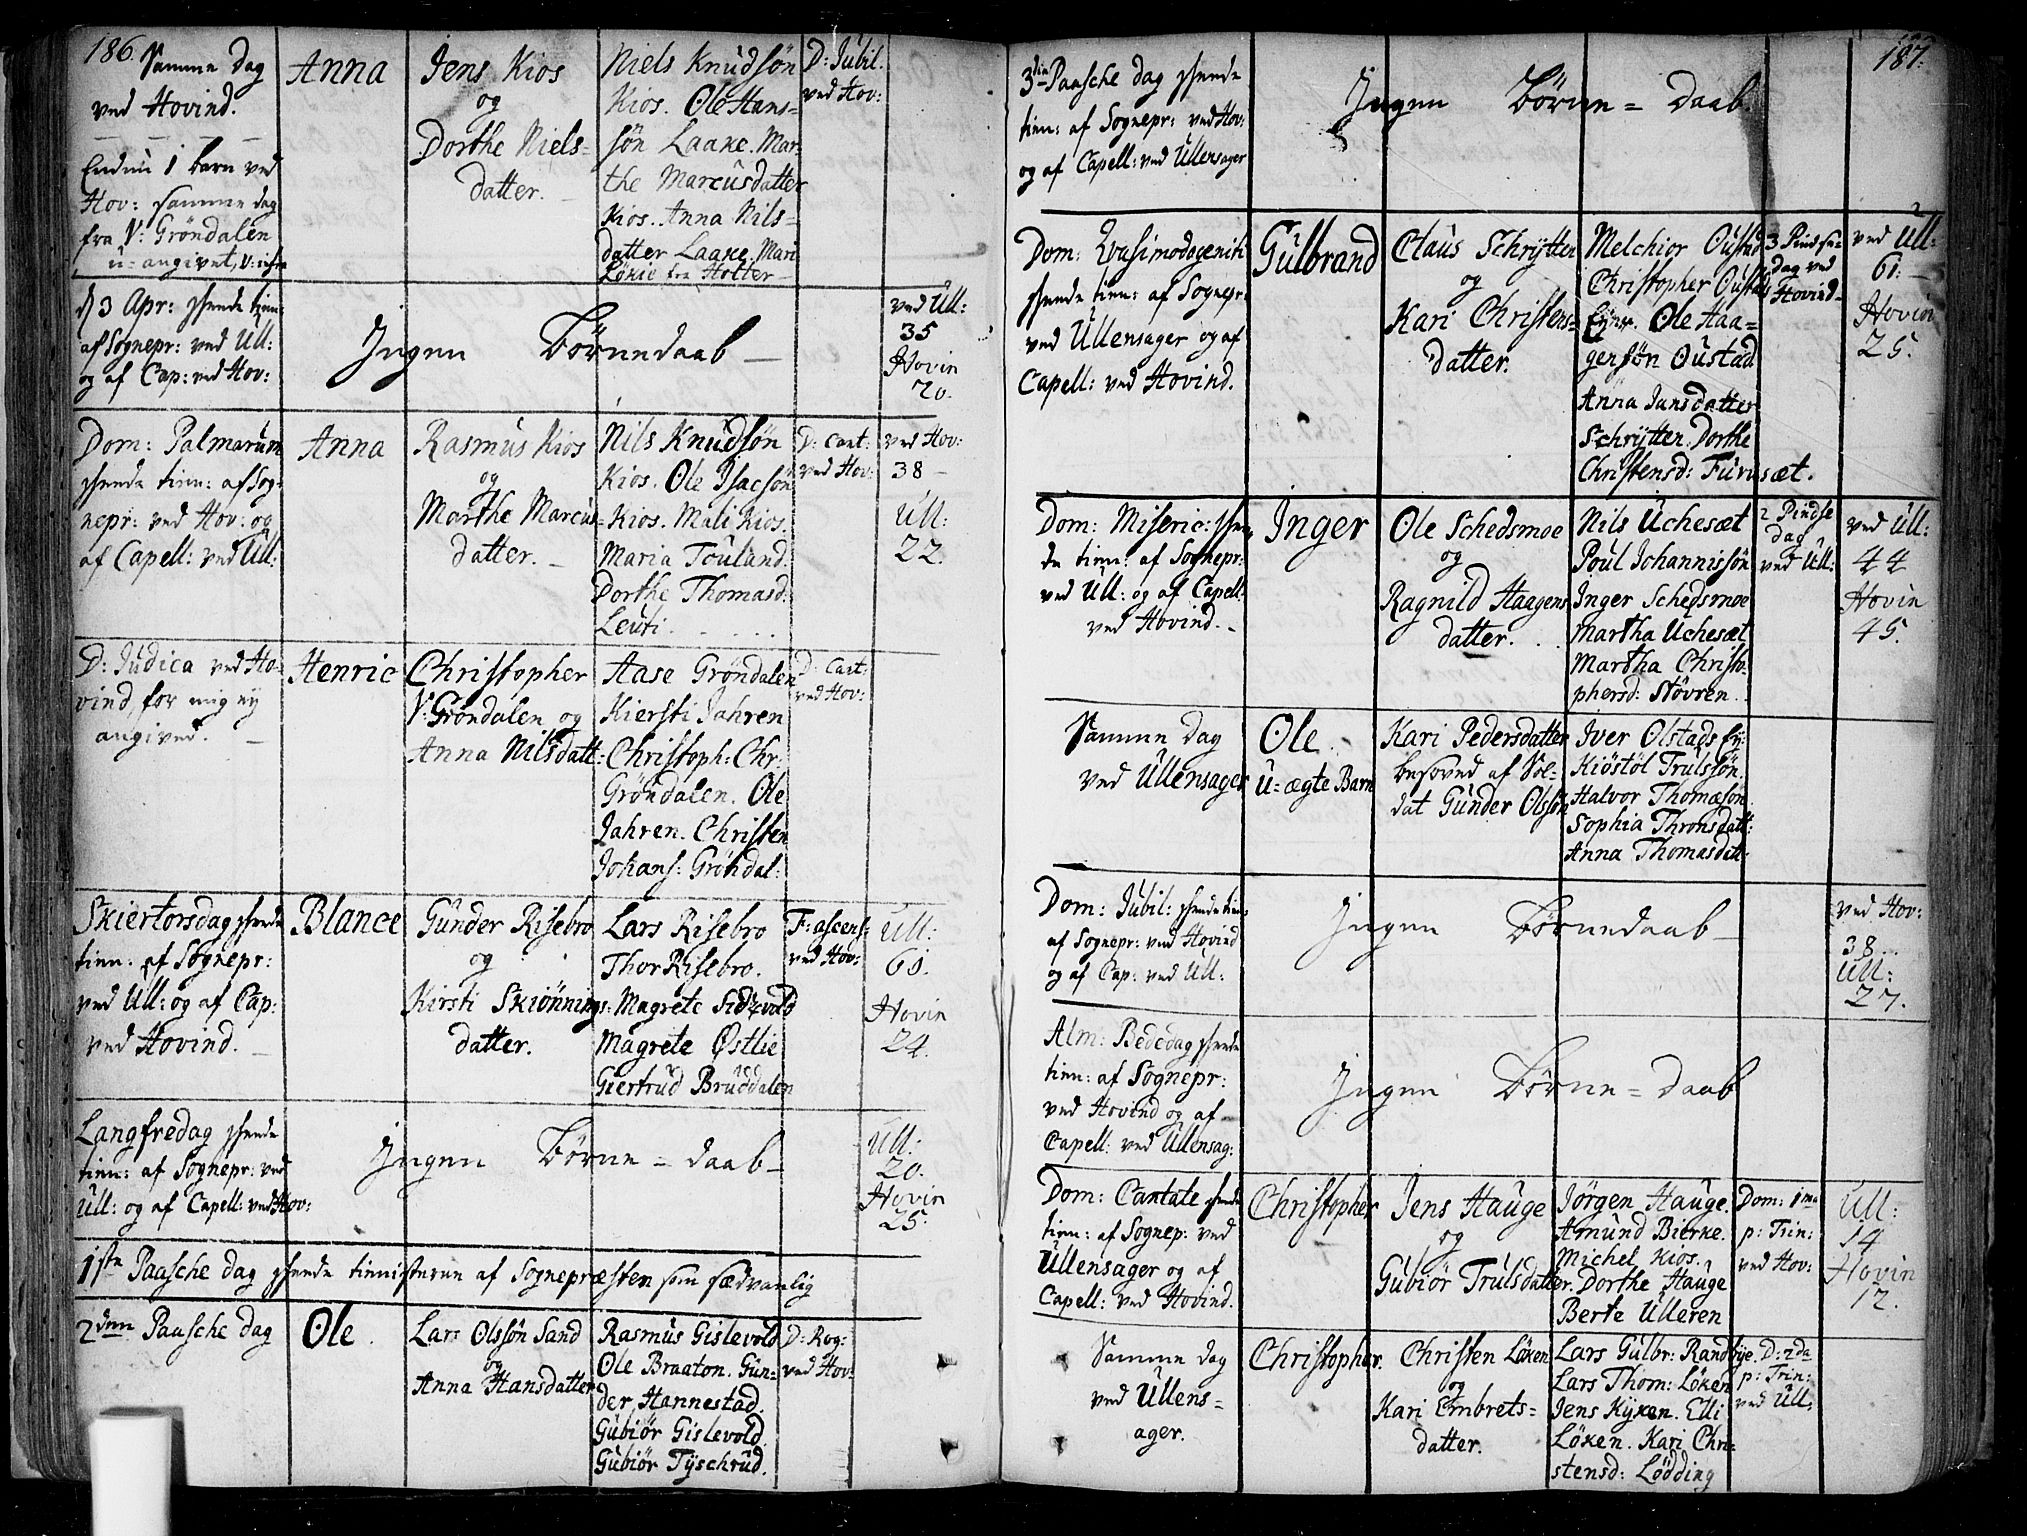 186.
Samme Dag
ved Hovind.
Endnu 1 barn ved
Hov: samme dag
fra V: Gröndalen
u-angivet, V: infra
Anna
Jens Kios
og
Dorthe Niels-
datter.
Niels Knudsön
Kios. Ole Hans-
sön Laake. Mar-
the Marcusdatter
Kios. Anna Nils-
datter Laake. Mari
Lökie fra Holter
D: Jubil:
ved Hov:
d 3 Apr: Messe tien:
af Sognepr: ved Ull:
og af Cap: ved Hov:
Ingen Börnedaab
ved Ull:
35
Hovin
20.
Dom: Palmarum
tien: af Sog-
nepr: ved Hov: og
af Capell: ved Ull:
Anna
Rasmus Kios
og
Marthe Marcus-
datter.
Nils Knudsön
Kios. Ole Isacsön
Kios. Mali Kios.
Maria Touland.
Dorthe Thomasd:
Leuti.
D: Cant:
ved Hov:
ved Hov:
38
Ull:
22.
D: Judica ved Ho-
vind, for mig ej
angived.
Henric
Christopher
V: Gröndalen og
Anna Nilsdatt:
Aase Gröndalen
Kiersti Jahren
Christoph: Chr:
Gröndalen. Ole
Jahren. Christen
Johans: Gröndal:
D: Cant:
ved Hov:
Skiertorsdag
tien: af Sognepr:
ved Ull: og af Cap:
ved Hovind.
Blance
Gunder Risebro
og
Kirsti Skiönnings-
datter.
Lars Risebro
Thor Risebro.
Magrete Sidzvold
Magrete Östlie
Giertrud Bruddalen
F: ascens:
ved Hov:
Ull:
60.
Hovin
24.
Langfredag
tien: af Sognepr: ved
Ull: og af Capell: ved Hov:
Ingen Börne-daab
Ull:
20.
Hovin
25.
1ste Paasche dag af Sognepræsten som sædvanlig
2den Paasche dag
Ole
Lars Olssön Sand
og
Anna Hansdatter
Rasmus Gislevold
Ole Braaton. Gun-
der Hannestad.
Gubiör Gislevold
Gubiör Tÿschrud.
D: Rog:
ved Hov:
187.
3die Paasche dag
tien: af Sognepr: ved Hov:
og af Capell: ved Ullensager
Ingen Börne-daab
Dom: Qvasimodogeniti
tien: af Sognepr:
ved Ullensager og af
Capell: ved Hovind.
Gulbrand
Claus Schrÿtter
og
Kari Christens-
datter.
Melchior Oustad
Christopher Oustad
Ejer. Ole Haa-
gensön Oustad
Anna Jansdatter
Schrÿtter. Dorthe
Christensd: Furusæt.
3 Pindse-
Dag ved
Hovind
ved Ull:
61.
Hovin
25.
Dom: Miseric:
tien: af Sognepr:
ved Ull: og af Capell:
ved Hovind.
Inger
Ole Schedsmoe
og
Ragnild Haagens
datter.
Nils Uchesæt
Poul Johannissön
Inger Schedsmoe
Martha Uchesæt
Martha Christo-
phersd: Stövren.
2 Pindse
Dag
ved Ull:
ved Ull:
44
Hovin
45.
Samme Dag
ved Ullensager
Ole
U-ægte Barn
Kari Pedersdatter
besoved af Sol-
dat Gunder Olssön
Iver Olstads Ej:
Kiöstöl Trulssön.
Halvor Thomæsön
Sophia Thronsdatt:
Anna Thomasdatt:
Dom: Jubil:
af Sognepr: ved Hovind
og af Cap: ved Ull:
Ingen Börnedaab
ved Hov:
38
Ull:
27.
Alm: Bededag
tien: af Sognepr:
ved Hovind og af
Capell: ved Ullensag:
Ingen Börne-daab
Dom: Cantate
tien: af Sognep: ved
Ullensager og af
Capell: ved Hovind.
Christopher
Jens Hauge
og
Gubiör Trulsdatter.
Jörgen Hauge.
Amund Bierke.
Michel Kios.
Dorthe Hauge
Berte Ulleren
Dom: 1ma
p: Trin:
ved Hov:
Ull:
14
Hovin
12.
Samme Dag
ved Ullens-
ager.
Christopher.
Christen Löken
og
Kari Embrets-
datter.
Lars Gulbr: Randbÿe.
Lars Thom: Löken
Jens Kÿken. Elli
Löken. Kari Chri-
stensd: Lödding
D: 2da
p: Trin:
ved Ull: